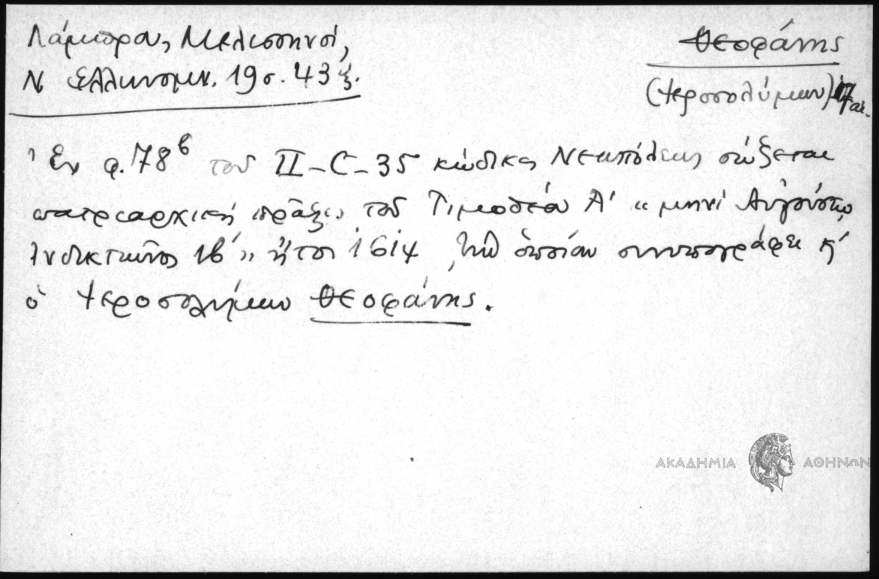 Λάμπρου, Μελισσηνοί,
Ν Ελληνομν. 19 σ. 43 ἑξ.
Θεοφάνης
(Ἱεροσολύμων) 17 αι.
Ἐν φ. 78β τοῦ II-C-35 κώδικος Νεαπόλεως σώζεται
πατριαρχική πρᾶξις τοῦ Τιμοθέου Α' "μηνί Αὐγούστῳ
Ἰνδικτιῶνος ιβ'" ἤτοι 1614, τήν ὁποίαν συνυπογράφει κ'
ὁ Ἱεροσολύμων Θεοφάνης.
ΑΚΑΔΗΜΙΑ ΑΘΗΝΩΝ